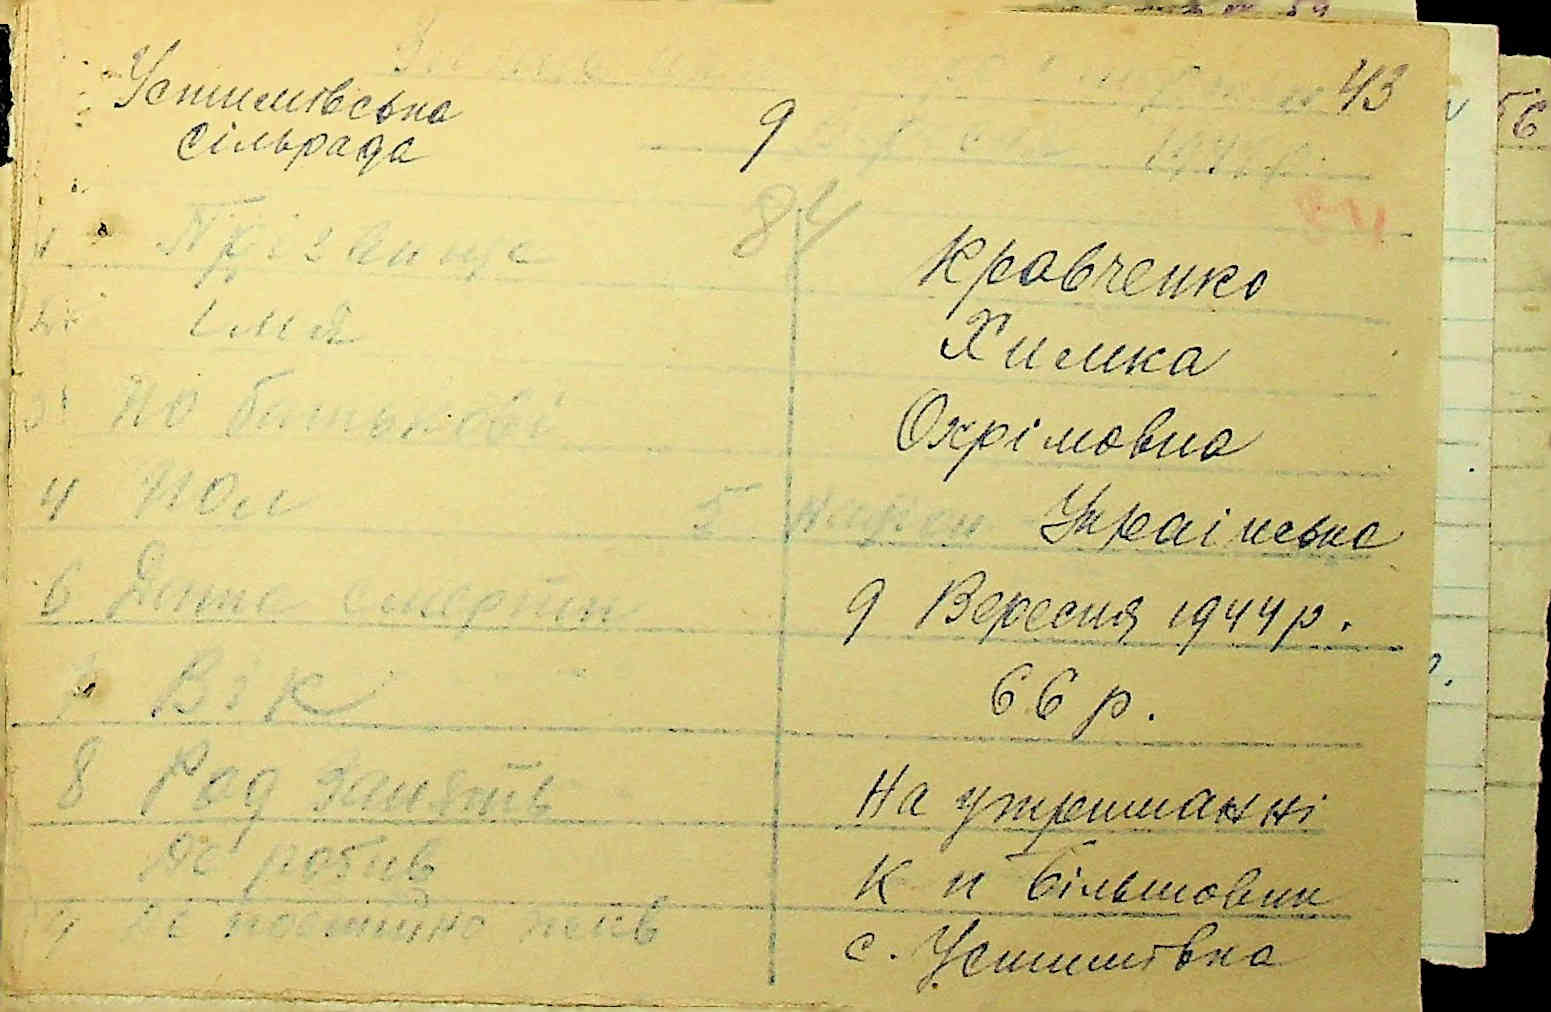 43
Устимівська
сільрада
9
84
1 Прізвище Кравченко
2 імя Химка
3 по батькові Охрімовна
4 Пол 5 націон Українська
6 Дата смерти 9 Вересня 1944 р.
7 Вік 66 р.
8 Рад занять На утриманні
де робив К п більшовик
9 де постійно жив с. Устимівка